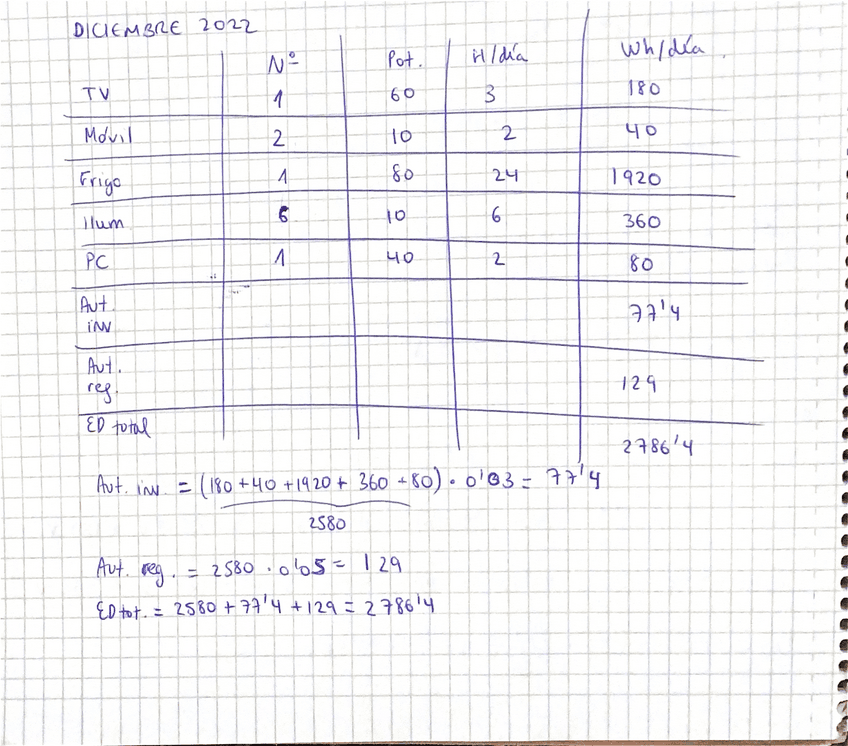 DICIEMBRE 2022
Nº Pot. H/día Wh/día
TV 1 60 3 180
Móvil 2 10 2 40
Frigo 1 80 24 1920
Ilum 6 10 6 360
PC 1 40 2 80
Aut. inv 77'4
Aut. reg. 129
ED total 2786'4
Aut. inv. = (180+40+1920+360+80)·0'03 = 77'4
2580
Aut. reg. = 2580·0'05 = 129
ED tot. = 2580+77'4+129 = 2786'4